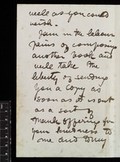 well as you could
wish.
I am in the labour
pains of composing
another book and
will take the
liberty of sending
you a Copy as
soon as it is out
as a sort
thank offering for
your kindness to
me and Tomy